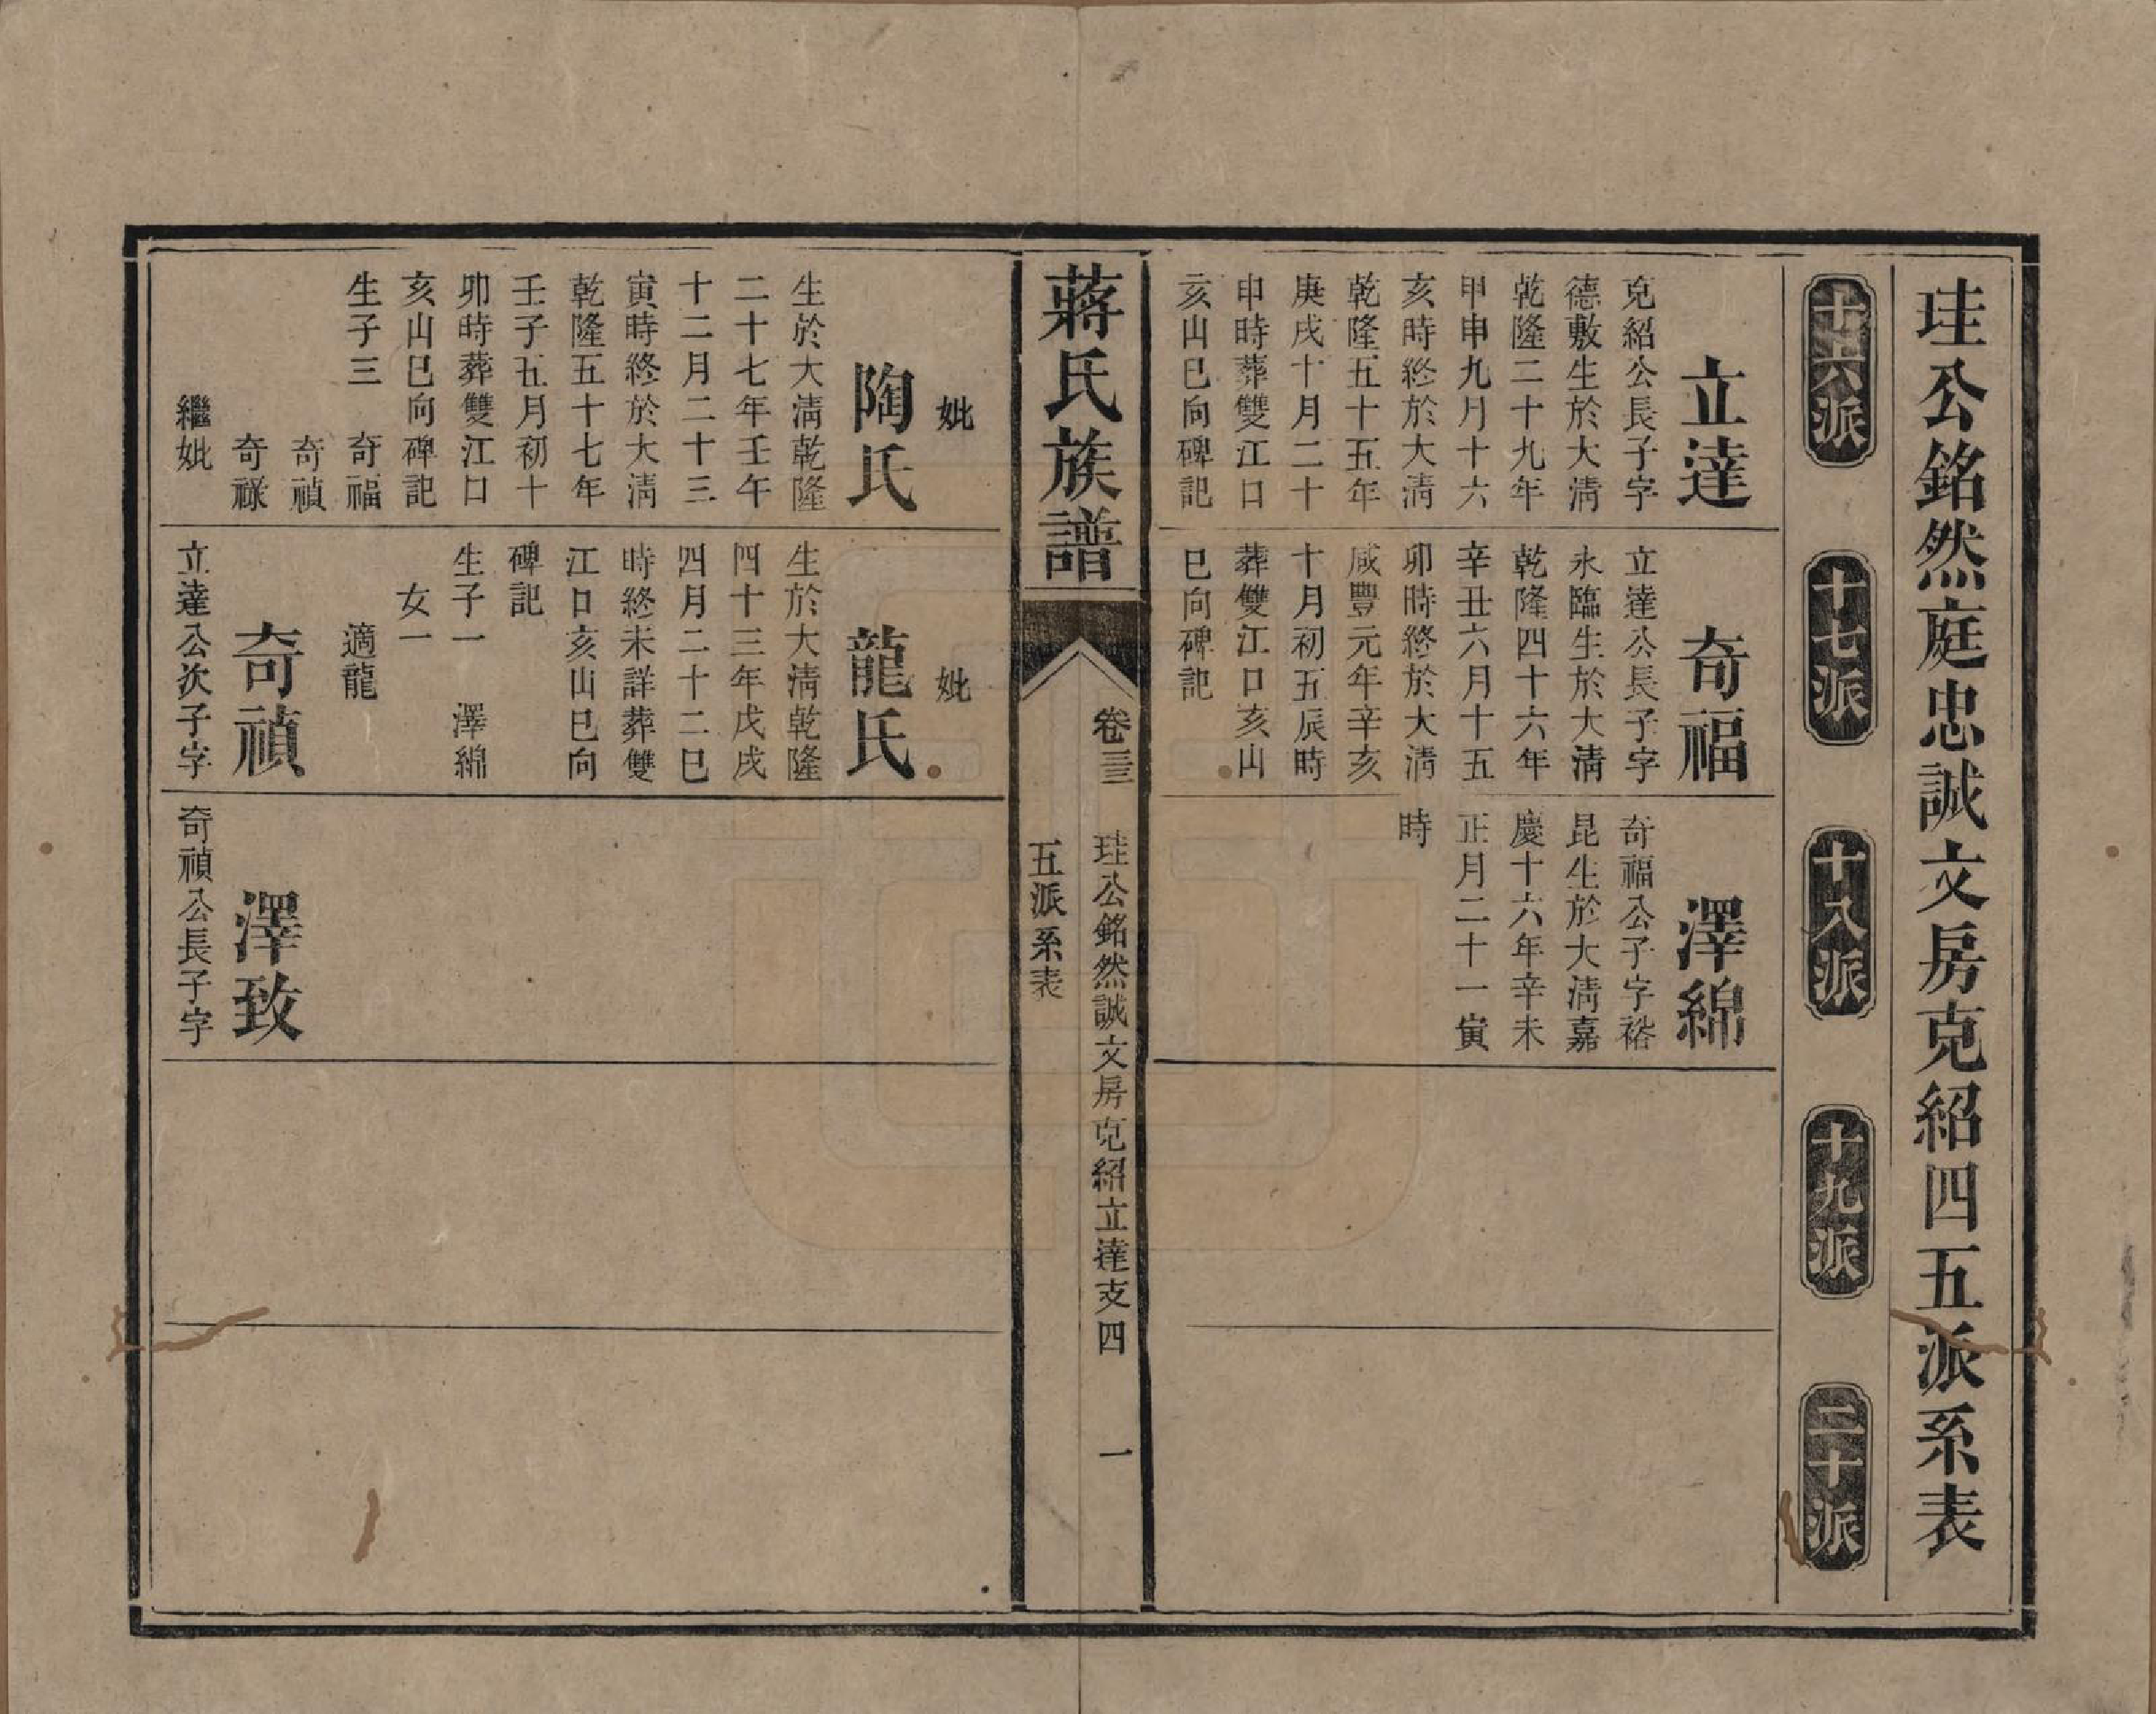 珪公銘然庭忠誠文房克紹四五派系表
十六派
十七派
十八派
十九派
二十派
立達
克紹公長子字
德敷生於大清
乾隆二十九年
甲申九月十六
亥時終於大清
乾隆五十五年
庚戌十月二十
申時葬雙江口
亥山巳向碑記
奇福
立達公長子字
永臨生於大清
乾隆四十六年
辛丑六月十五
卯時終於大清
咸豐元年辛亥
十月初五辰時
葬雙江口亥山
巳向碑記
澤綿
奇福公子字裕
昆生於大清嘉
慶十六年辛未
正月二十一寅
時
蔣氏族譜
卷三三
珪公銘然誠文房克紹立達支四
五派系表
一
妣
陶氏
生於大清乾隆
二十七年壬午
十二月二十三
寅時終於大清
乾隆五十七年
壬子五月初十
卯時葬雙江口
亥山巳向碑記
生子三 奇福
奇禎
奇祿
繼妣
妣
龍氏
生於大清乾隆
四十三年戊戌
四月二十二巳
時終未詳葬雙
江口亥山巳向
碑記
生子一 澤綿
女一
適龍
奇禎
立達公次子字
澤致
奇禎公長子字